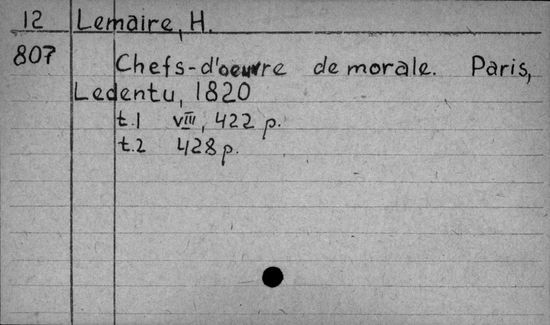 12 Lemaire, H.
807
Chefs-d'oeuvre de morale. Paris,
Ledentu, 1820
t.1 VIII, 422 p.
t.2 428 p.